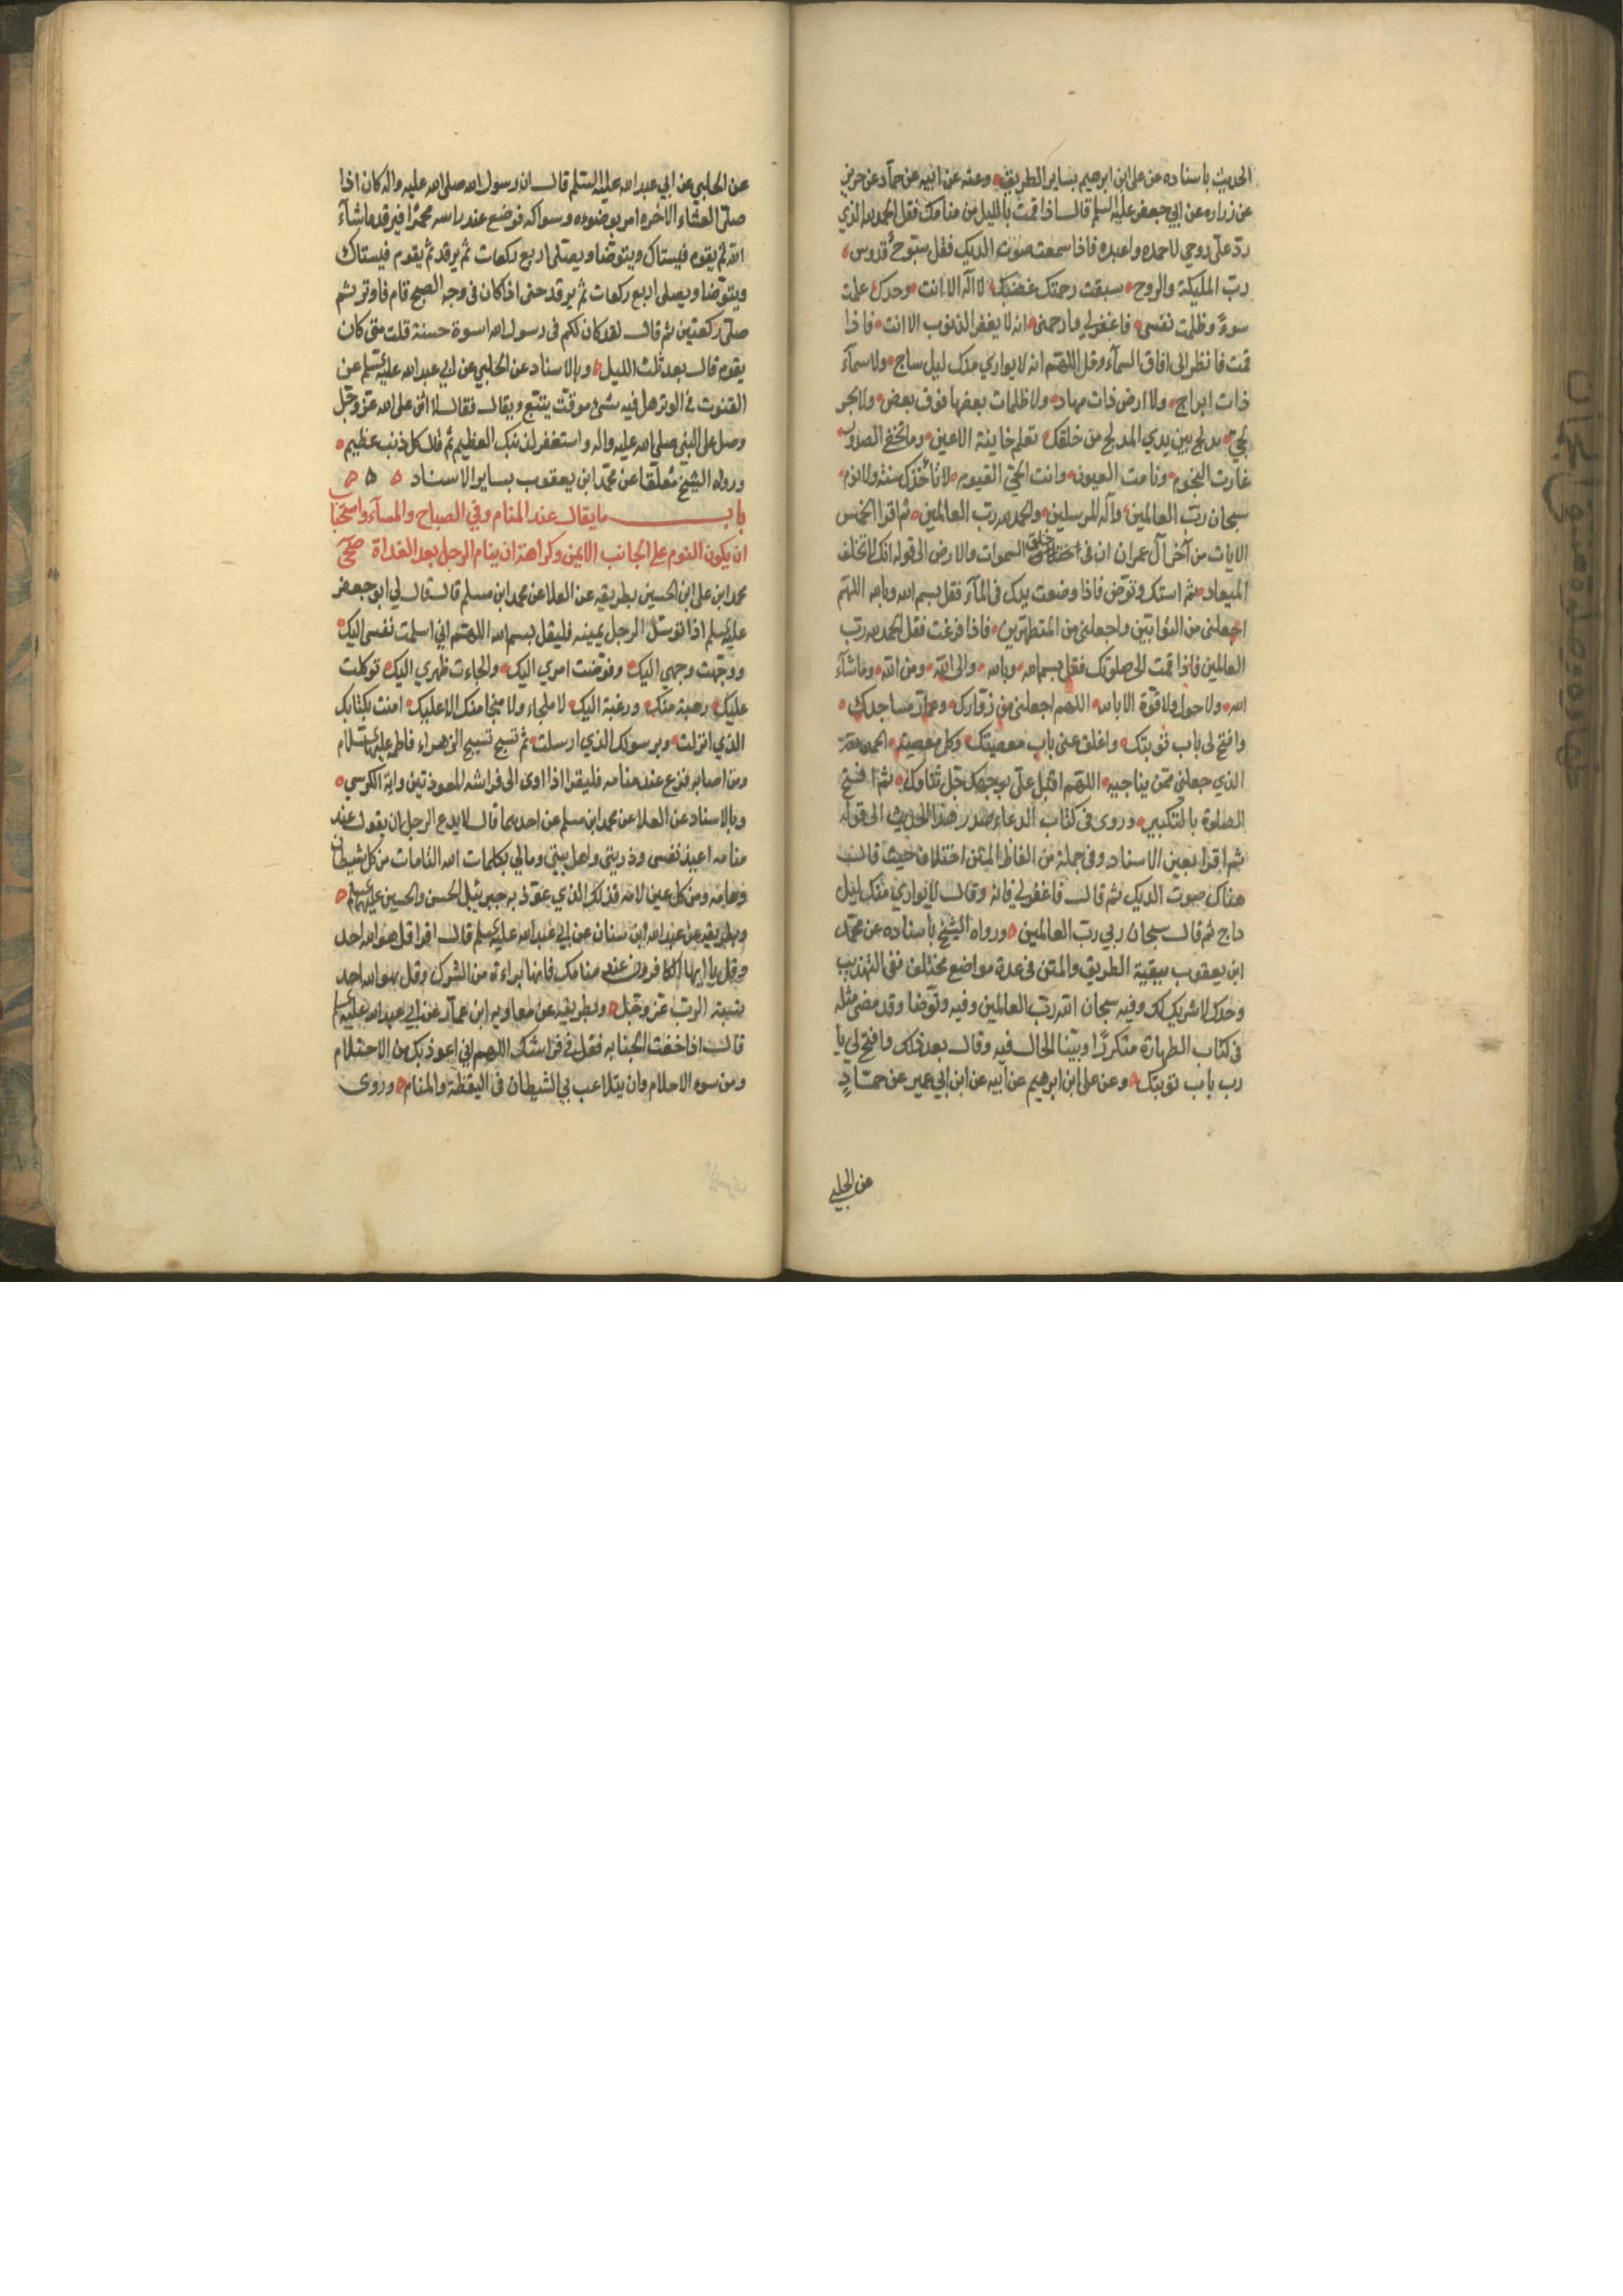 الحديث باسناده عن على ابن ابرهيم بساير الطريق وعنه عن ابيه عن حماد عن حريز
عن زراره عن ابي جعفر عليه السلم قال اذا قمت بالليل من منامك فقل الحمد لله الذي
ردّ علىّ روحي لاحمده واعبده فاذا سمعت صوت الديك فقل سبّوح قدوس
ربّ الملئكة والروح سبقت رحمتك غضبك لا اله الا انت وحدك عملت
سوءً وظلمت نفسى فاغفرلي وارحمنى انه لا يغفر الذنوب الا انت فاذا
قمت فانظر الى افاق السمآء وقل اللهم انه لا يواري منك ليل ساج ولا سمآء
ذات ابراج ولا ارض ذات مهاد ولا ظلمات بعضها فوق بعض ولا بحر
لجّي يدلج بين يدي المدلج من خلقك تعلم خاينة الاعين وما تخفي الصدور
غارت النجوم ونامت العيون وانت الحيّ القيوم لا تأخذك سنة ولا نوم
سبحان ربّ العالمين وآله المرسلين والحمد لله رب العالمين ثم اقرا الخمس
الايات من آخر آل عمران ان فى خلق السموات والارض الى قوله انك لا تخلف
الميعاد ثم استك وتوّض فاذا وضعت يدك فى المآء فقل بسم الله وبالله اللهم
اجعلنى من التوابين واجعلنى من المتطهرين فاذا فرغت فقل الحمد لله رب
العالمين فاذا قمت الى صلوتك فقل بسم الله وبالله والى الله ومن الله وماشآء
الله ولا حول ولا قوّة الا بالله اللهم اجعلنى من زوّارك وعمّار مساجدك
وافتح لى باب توبتك واغلق عنى باب معصيتك وكل معصية الحمد لله
الذي جعلنى ممّن يناجيه اللهم اقبل علىّ بوجهك جلّ ثناؤك ثم افتتح
الصلوة بالتكبير وروى فى كتاب الدعاء صدر هذا الحديث الى قوله
ثم اقرا بعين الاسناد وفى جملة من الفاظ المتن اختلاف حيث قال
هناك صوت الديك ثم قال فاغفرلي فانه وقال لا يواري منك ليل
داج ثم قال سبحان ربي ربّ العالمين ورواه الشيخ باسناده عن محمّد
ابن يعقوب ببقية الطريق والمتن فى عدة مواضع مختلف ففى التهذيب
وحدك لا شريك لك وفيه سبحان الله ربّ العالمين وفيه وتوّضا وقد مضى مثله
فى كتاب الطهارة متكررًا وبيّنا الحال فيه وقال بعد ذلك وافتح لي يا
رب باب توبتك وعن على ابن ابرهيم عن ابيه عن ابن ابي عمير عن حمّادٍ
عن الحلبي
عن الحلبي عن ابي عبد الله عليه السلم قال ان رسول الله صلى الله عليه واله كان اذا
صلّى العشاء الاخره امر بوضوءه وسواكه فوضع عند راسه مخمّرا فيرقد ماشآء
الله ثم يقوم فيستاك ويتوضّا ويصلى اربع ركعات ثم يرقد ثم يقوم فيستاك
ويتوّضا ويصلى اربع ركعات ثم يرقد حتى اذا كان فى وجه الصبح قام فاوتر ثم
صلّى ركعتين ثم قال لقد كان لكم فى رسول الله اسوة حسنة قلت متى كان
يقوم قال بعد ثلث الليل وبالاسناد عن الحلبي عن ابي عبد الله عليه السلم عن
القنوت فى الوتر هل فيه شيء موقت يتبّع ويقال فقال لا اثن على الله عزّ وجّل
وصل على النبي صلى الله عليه واله واستغفر لذنبك العظيم ثم قال كل ذنب عظيم
ورواه الشيخ معلّقا عن محمّد ابن يعقوب بساير الاسناد
باب ما يقال عند المنام وفى الصباح والمسآء واستحباب
ان يكون النوم على الجانب الايمن وكراهة ان ينام الرجل بعد الغداة صحى
محمد ابن على ابن الحسين بطريقه عن العلا عن محمد ابن مسلم قال قال لي ابو جعفر
عليه السلم اذا توسّد الرجل يمينه فليقل بسم الله اللهم اني اسلمت نفسى اليك
ووجّهت وجهي اليك وفوّضت امري اليك والجاءت ظهري اليك توكلت
عليك رهبة منك ورغبة اليك لا ملجاء ولا منجا منك الا عليك امنت بكتابك
الذي انزلت وبرسولك الذي ارسلت ثم تسبح تسبيح الزهراء فاطمه عليها السلام
ومن اصابه فزع عند منامه فليقرا اذا اوى الى فراشه المعوذتين واية الكرسي
وبالاسناد عن العلا عن محمد ابن مسلم عن احدهما قال لا يدع الرجل ان يقول عند
منامه اعيذ نفسى وذريتى واهل بيتى ومالي بكلمات الله التامات من كل شيطان
وهامه ومن كل عين لامه فذلك الذي عوّذ به جبرئيل الحسن والحسين عليهما السلم
وبطريقه عن عبد الله ابن سنان عن ابي عبد الله عليه السلم قال اقرا قل هو الله احد
وقل يا ايها الكافرون عند منامك فانها براءة من الشرك وقل هو الله احد
نسبة الرب عزّ وجّل وبطريقه عن معاويه ابن عمآر عن ابي عبد الله عليه السلم
قال اذا خفت الجنابه فقل فى فراشك اللهم اني اعوذ بك من الاحتلام
ومن سوء الاحلام وان يتلاعب بي الشيطان فى اليقظة والمنام وروى